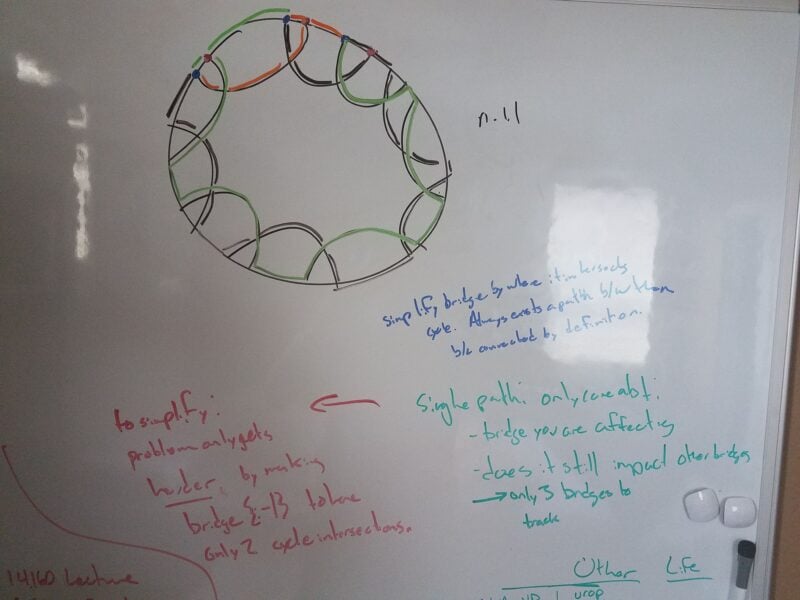 n. 1.1
simplify bridge by where it intersects
cycle. Always exists a path b/w them
b/c connected by definition.
Single path: only care abt:
- bridge you are affecting
- does it still impact other bridges
→ only 3 bridges to
track
to simplify:
problem only gets
harder, by making
bridge to have
only 2 cycle intersections.
14.160 Lecture
Other Life
urop